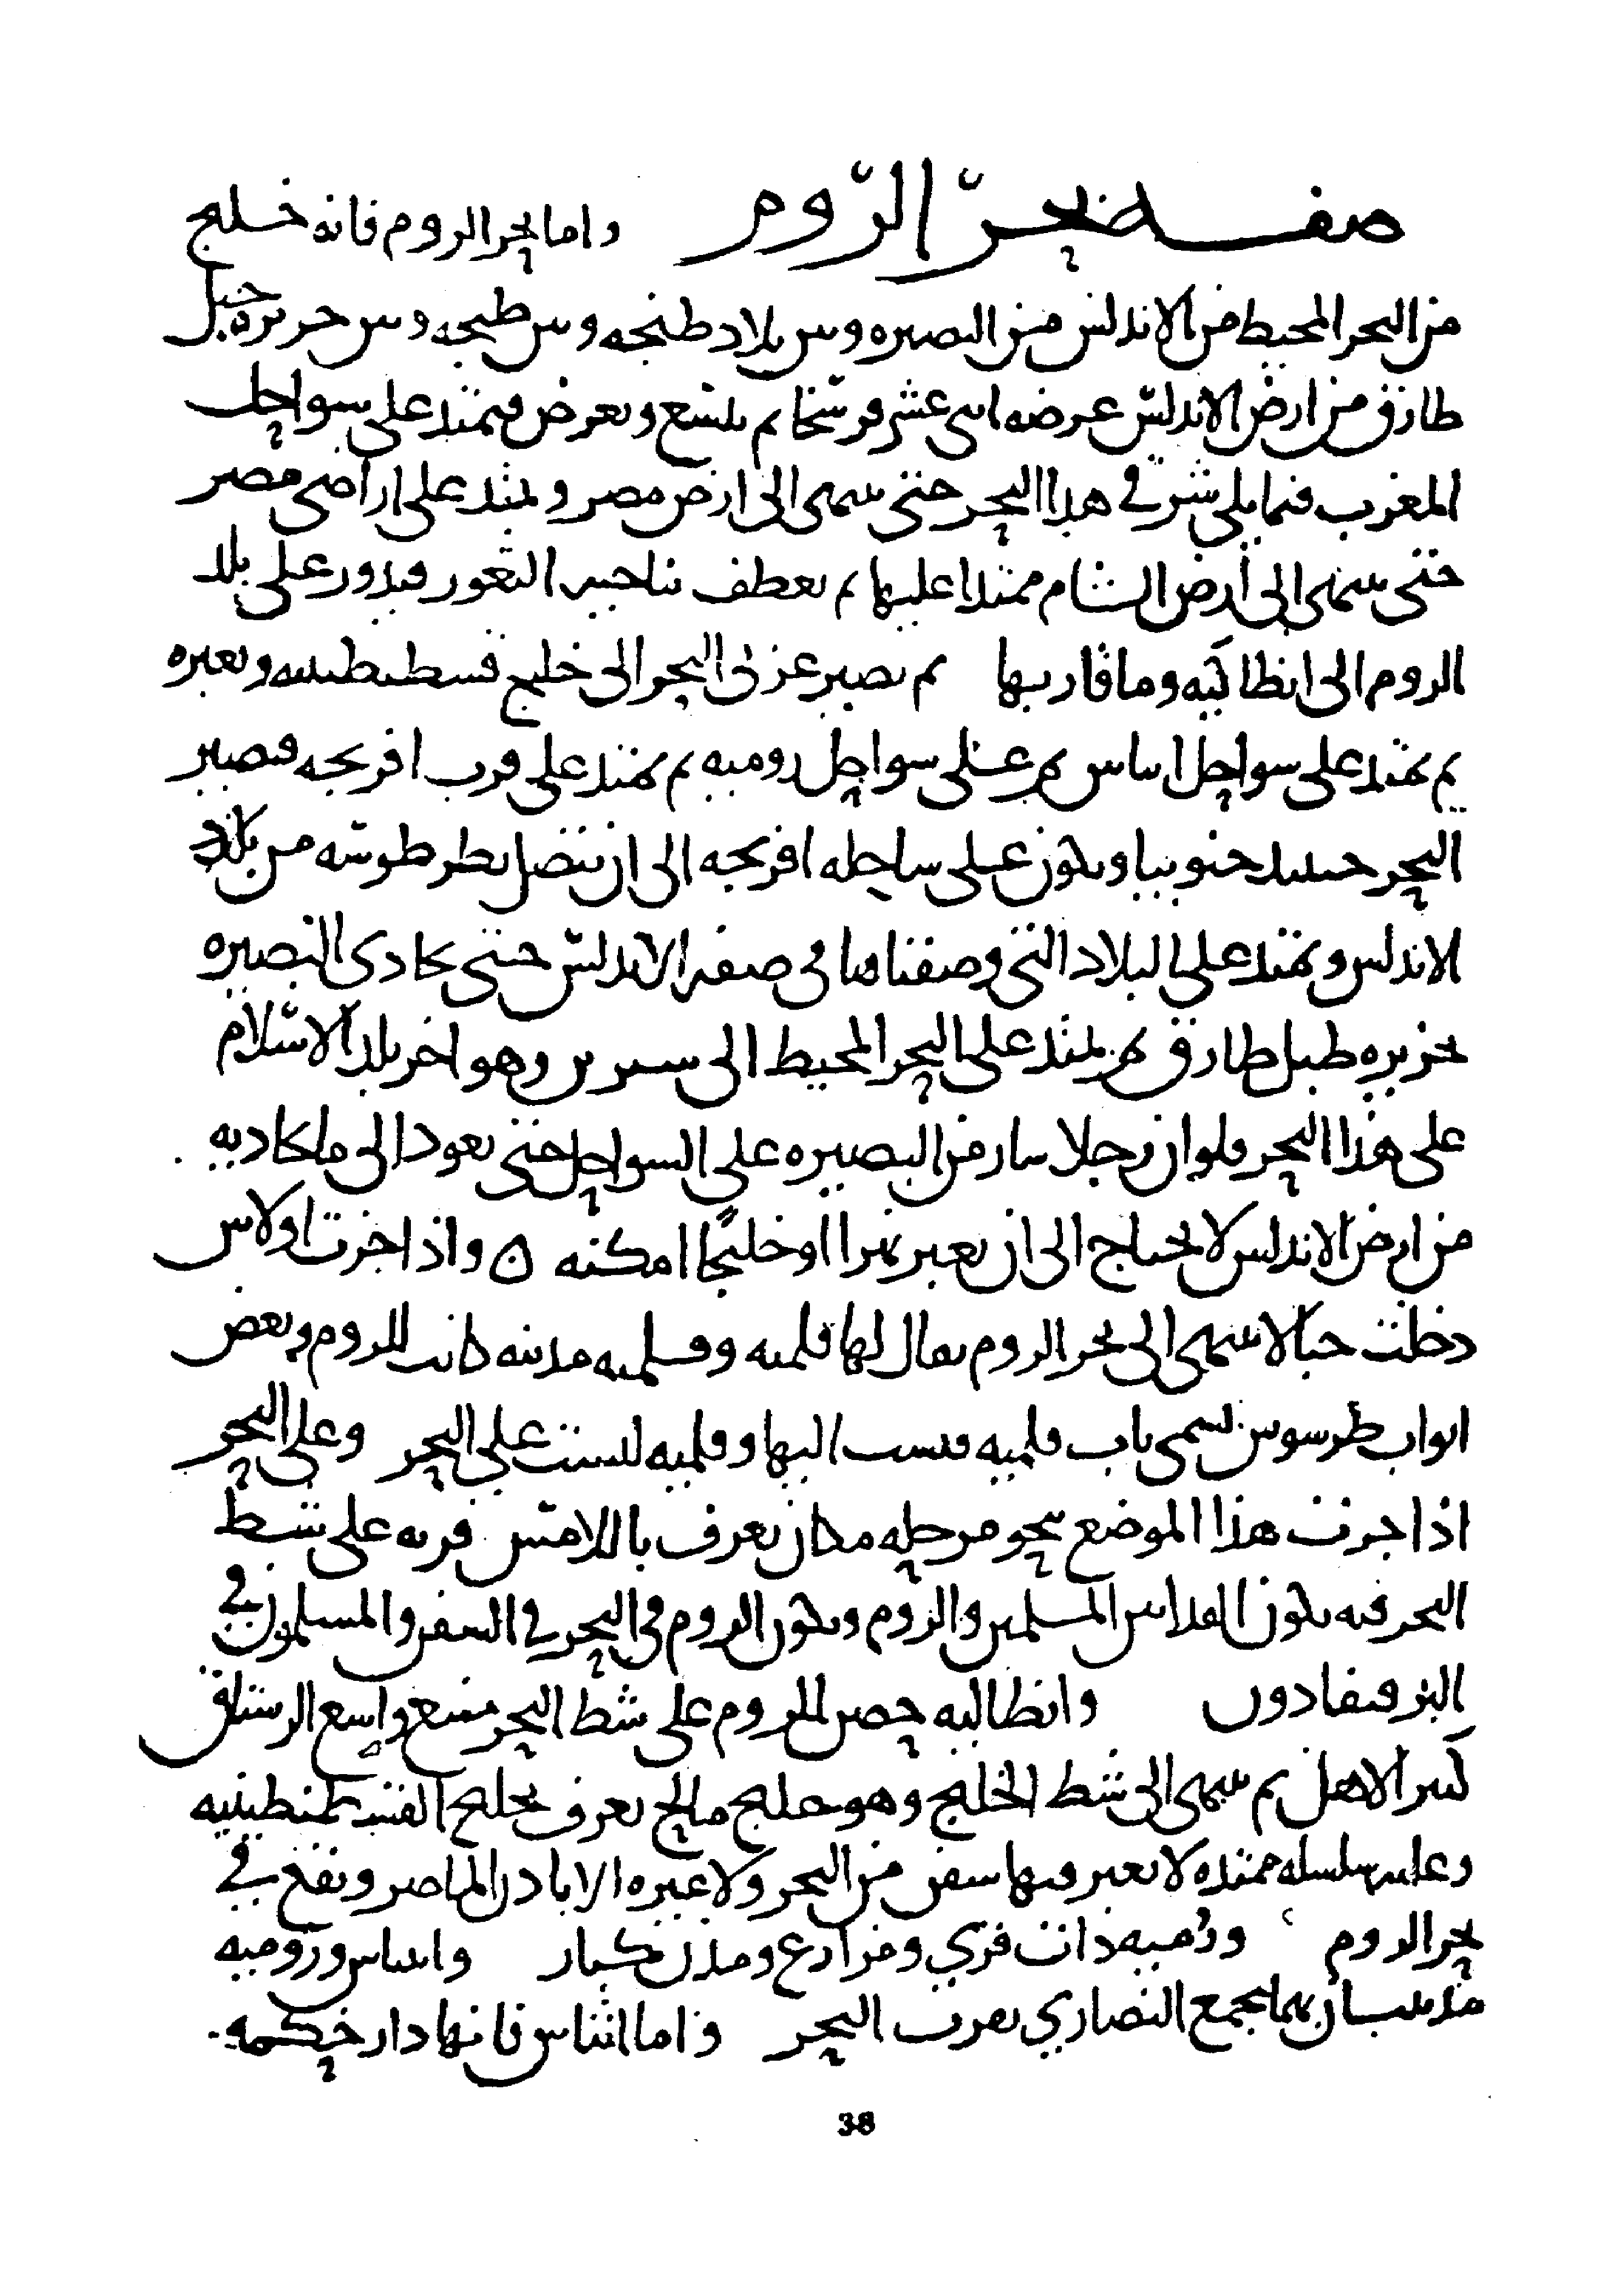 صفة بحر الروم واما بحر الروم فانه خليج
من البحر المحيط من الاندلس من البصيره وبين بلاد طنجه وبين طنجه وبين جزيره جبل
طارق من ارض الاندلس عرضه اثنى عشر فرسخا ثم يتسع ويعرض فيمتد على سواحل
المغرب فيما يلي شرقي هذا البحر حتى ينتهى الى ارض مصر ويمتد على اراضى مصر
حتى ينتهى الى ارض الشام ممتدا عليها ثم يعطف بناحيه الثغور فيدور على بلاد
الروم الى انطاكيه وما قاربها ثم يصير غربي البحر الى خليج قسطنطينيه ويعبره
ثم يمتد على سواحل اثناس ثم على سواحل روميه ثم يمتد على قرب افرنجه فيصير
البحر حينئذ جنوبيا ويكون على ساحله افرنجه الى ان يتصل بطرطوشه من بلاد
الاندلس ويمتد على البلاد التي وصفناها في صفه الاندلس حتى يحاذى البصيره
جزيره جبل طارق ثم يمتد على البحر المحيط الى شنترين وهو اخر بلد الاسلام
على هذا البحر فلو ان رجلا سار من البصيره على السواحل حتى يعود الى ما يحاذيه
من ارض الاندلس لا يحتاج الى ان يعبر نهرا او خليجا امكنه ۞ واذا جزت اولاس
دخلت جبالا ينتهى الى بحر الروم يقال لها قلميه وقلميه مدينه كانت للروم وبعض
ابواب طرسوس يسمى باب قلميه ينسب اليها وقلميه ليست على البحر وعلى البحر
اذا جزت هذا الموضع بنحو مرحله مكان يعرف باللامس قريه على شط
البحر فيه يكون الفداء بين المسلمين والروم ويكون الروم في البحر في السفن والمسلمون في
البر فيتفادون وانطاليه حصن للروم على شط البحر منيع واسع الرستاق
كثير الاهل ثم ينتهى الى شط الخليج وهو خليج مالح يعرف بخليج القسطنطينيه
وعليه سلسله ممتده لا يعبر فيها سفن من البحر ولا غيره الا باذن الماصر ويقع في
بحر الروم وروميه ذات قرى ومزارع ومدن كبار واثناس وروميه
مدينتان بهما مجمع النصارى بقرب البحر واما اثناس فانها دار حكمه
38